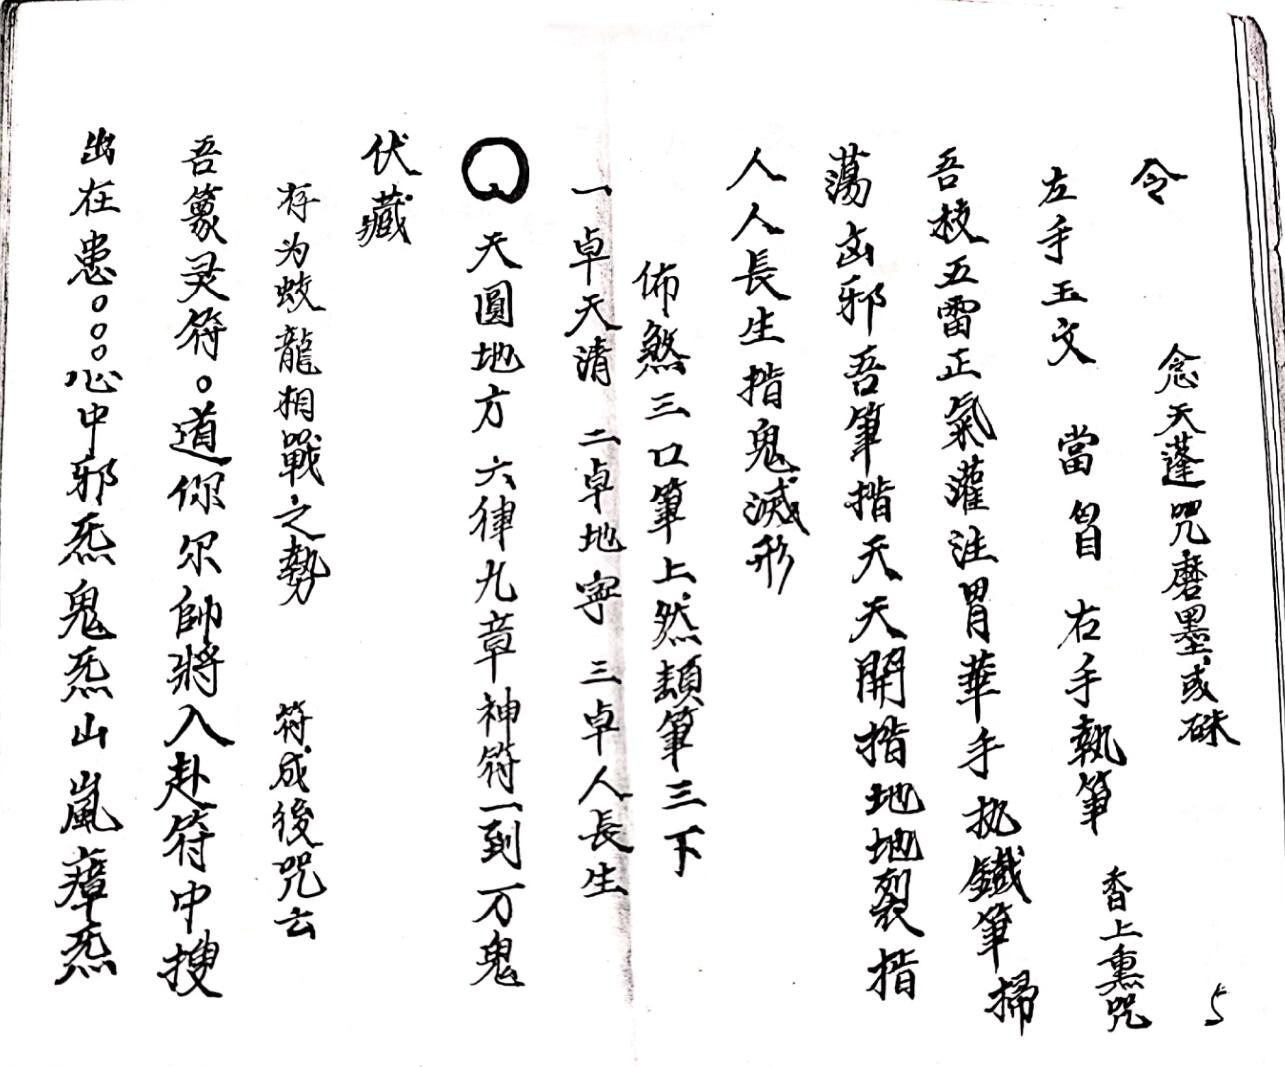 令
念天蓬咒磨墨或硃
左手玉文 當胷 右手執筆 香上熏咒
吾枝五雷正氣灌注胃華手执鐵筆掃
蕩凶邪吾筆揩天天開揩地地裂揩
人人長生揩鬼鬼滅形
佈煞三口筆上然頡筆三下
一卓天清 二卓地寧 三卓人長生
天圓地方 六律九章神符一到万鬼
伏藏
存为蛟龍相戰之勢 符成後咒云
吾篆灵符。道你尔帥將入赴符中搜
出在患。。。心中邪炁鬼炁山嵐瘴炁
5